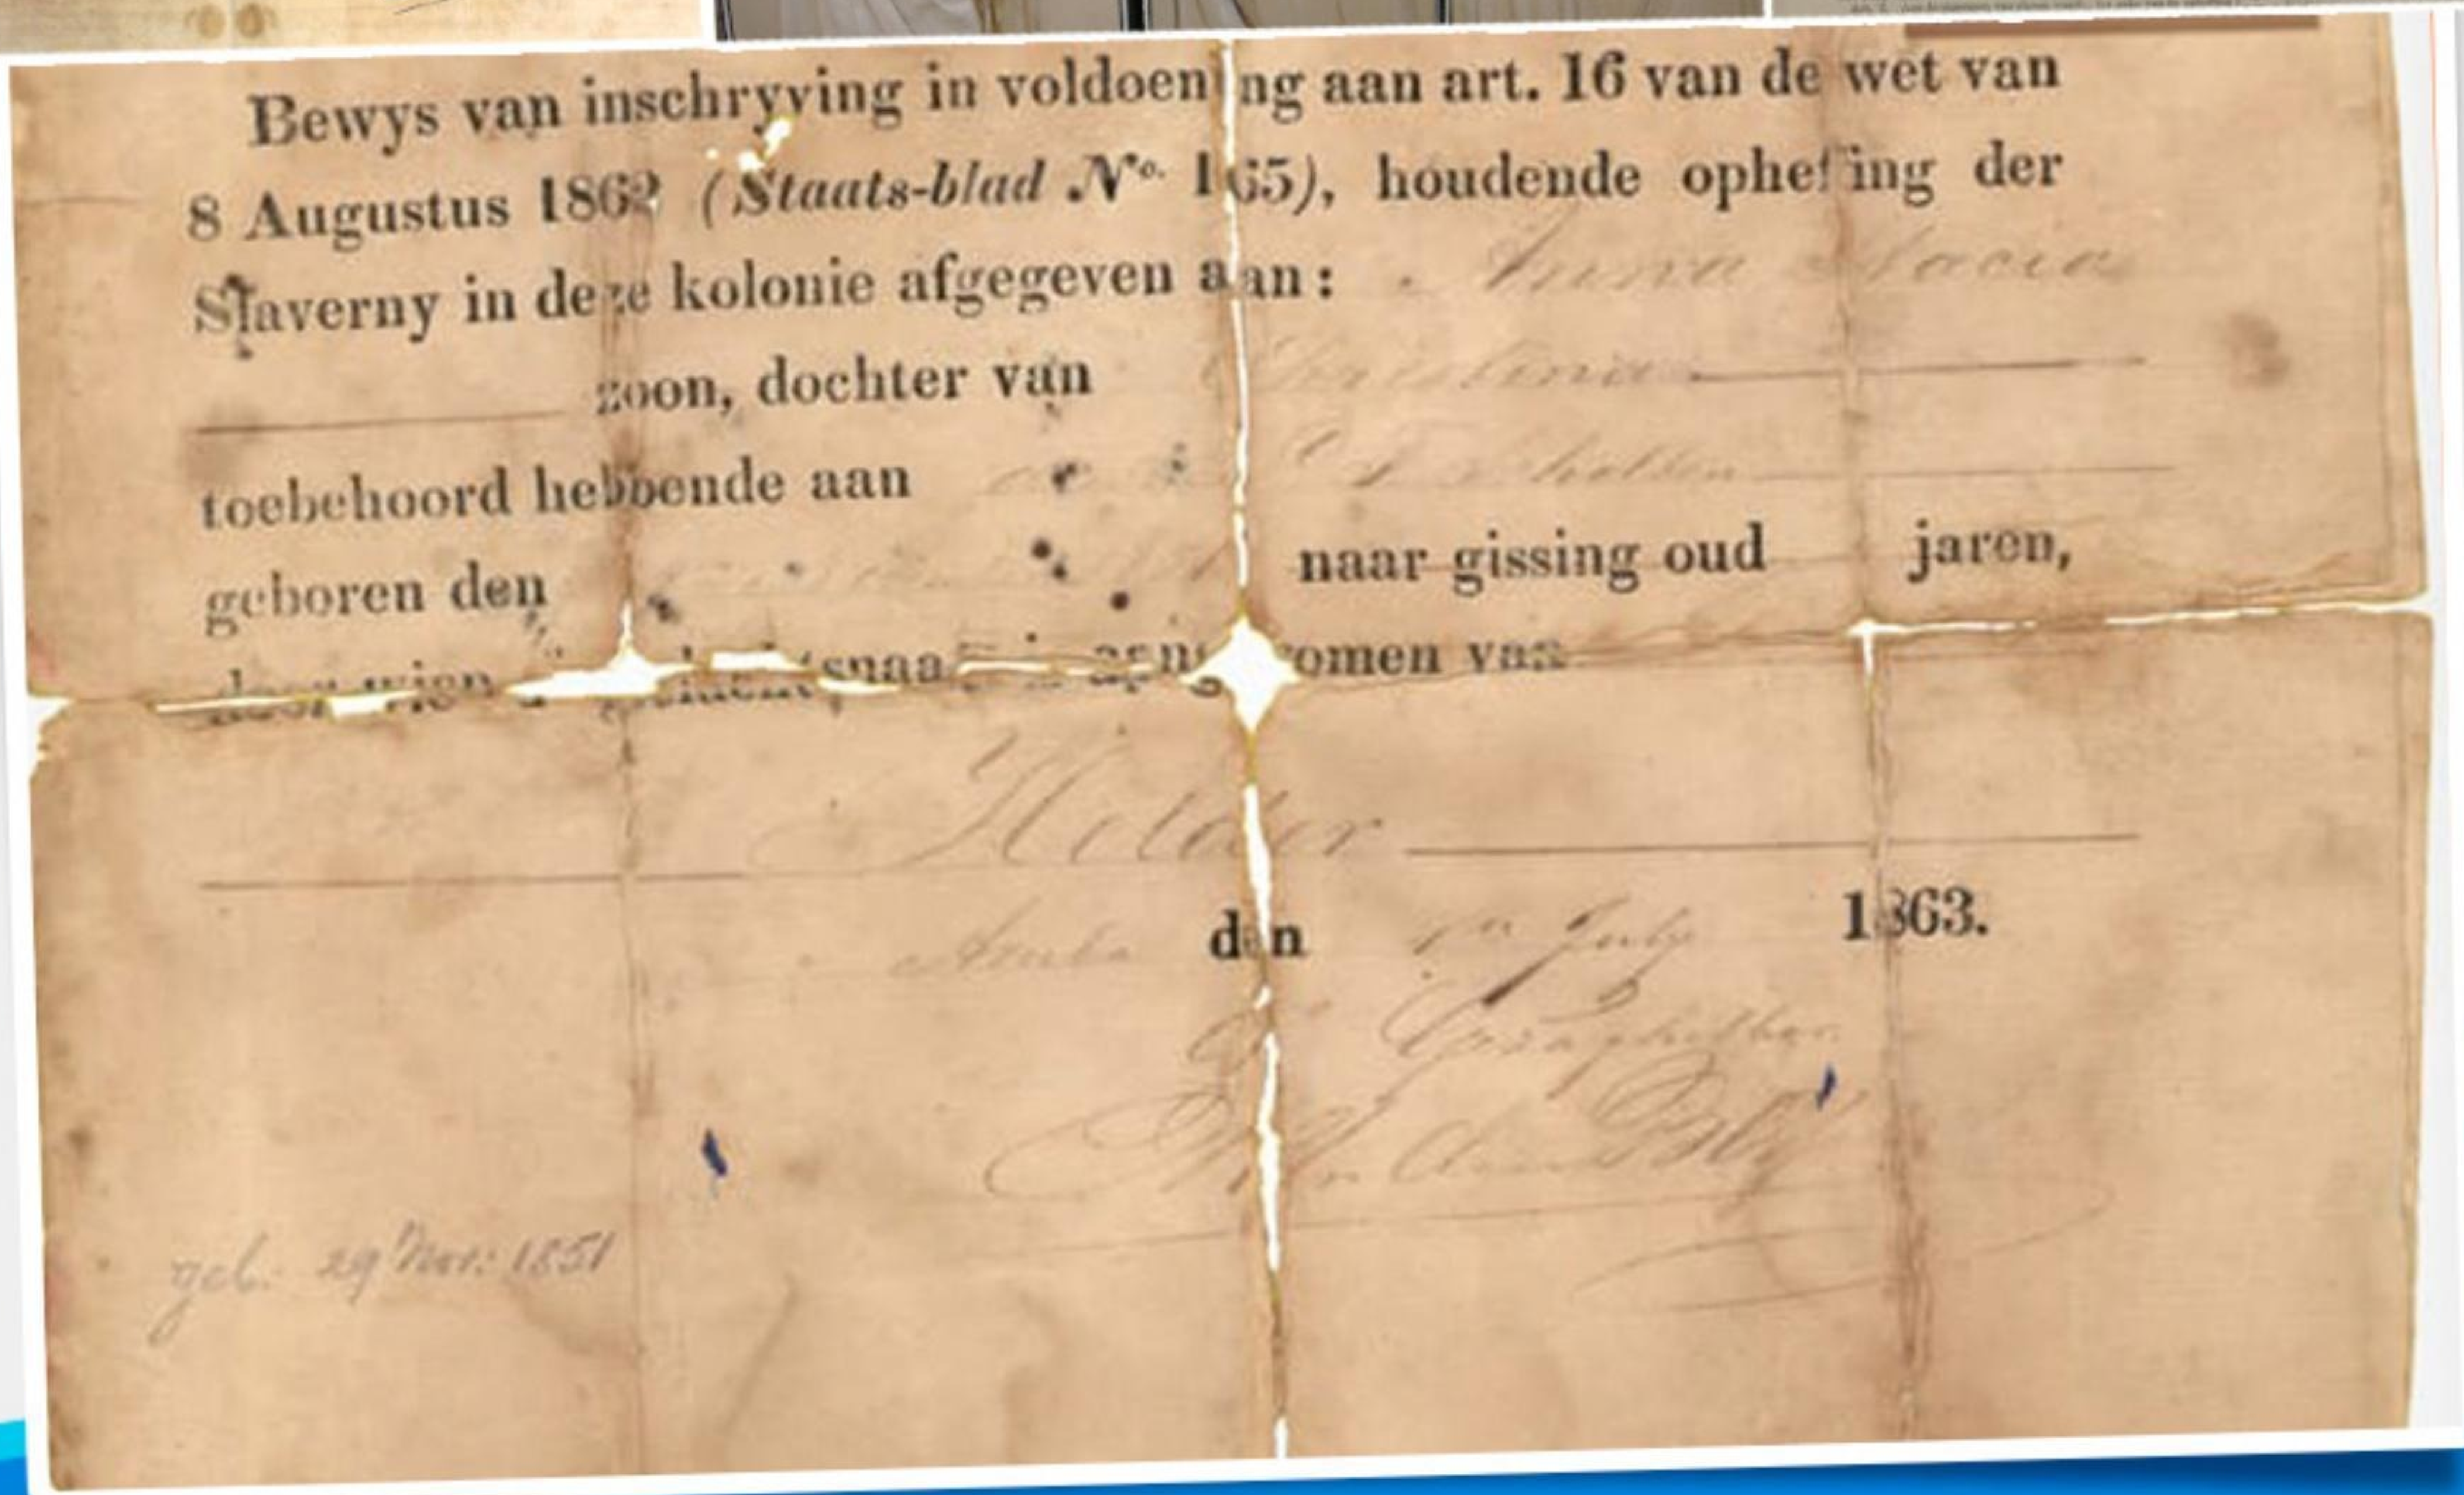 Bewys van inschryving in voldoening aan art. 16 van de wet van
8 Augustus 1862 (Staats-blad No. 165), houdende opheffing der
Slaverny in deze kolonie afgegeven aan: Anna Maria
zoon, dochter van Christina
toebehoord hebbende aan
geboren den naar gissing oud jaren,
door wien geslachtsnaam is aangenomen van
Helder
Aruba den 1en July 1863.
De Gezaghebber
geb. 29 Nov: 1851